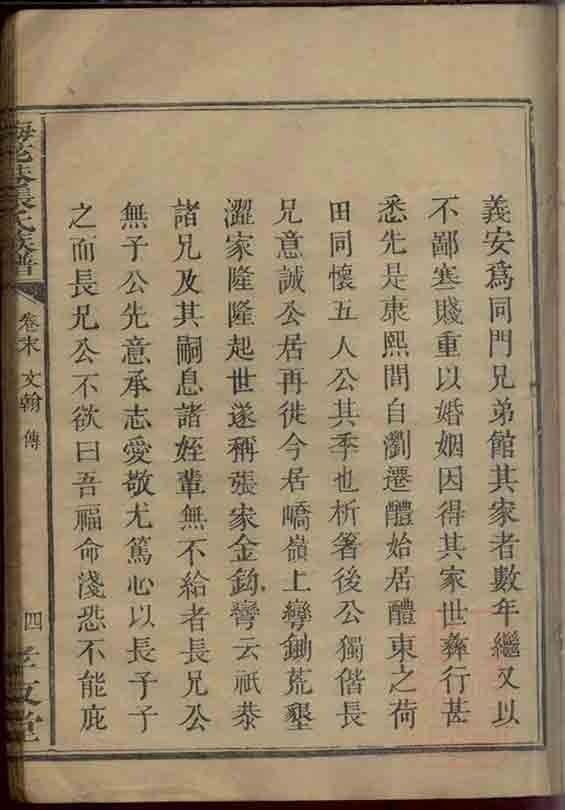 義安爲同門兄弟館其家者數年繼又以
不鄙寒賤重以婚姻因得其家世彝行甚
悉先是康熙間自瀏遷醴始居醴東之荷
田同懷五人公其季也析箸後公獨偕長
兄意誠公居再徙今居嶠嶺上彎鋤荒墾
澀家隆隆起世遂稱張家金鈎彎云祇恭
諸兄及其嗣息諸姪輩無不給者長兄公
無子公先意承志愛敬尤篤心以長子子
之而長兄公不欲曰吾福命淺恐不能庇
張氏族譜
卷末 文翰 傳
四
孝友堂